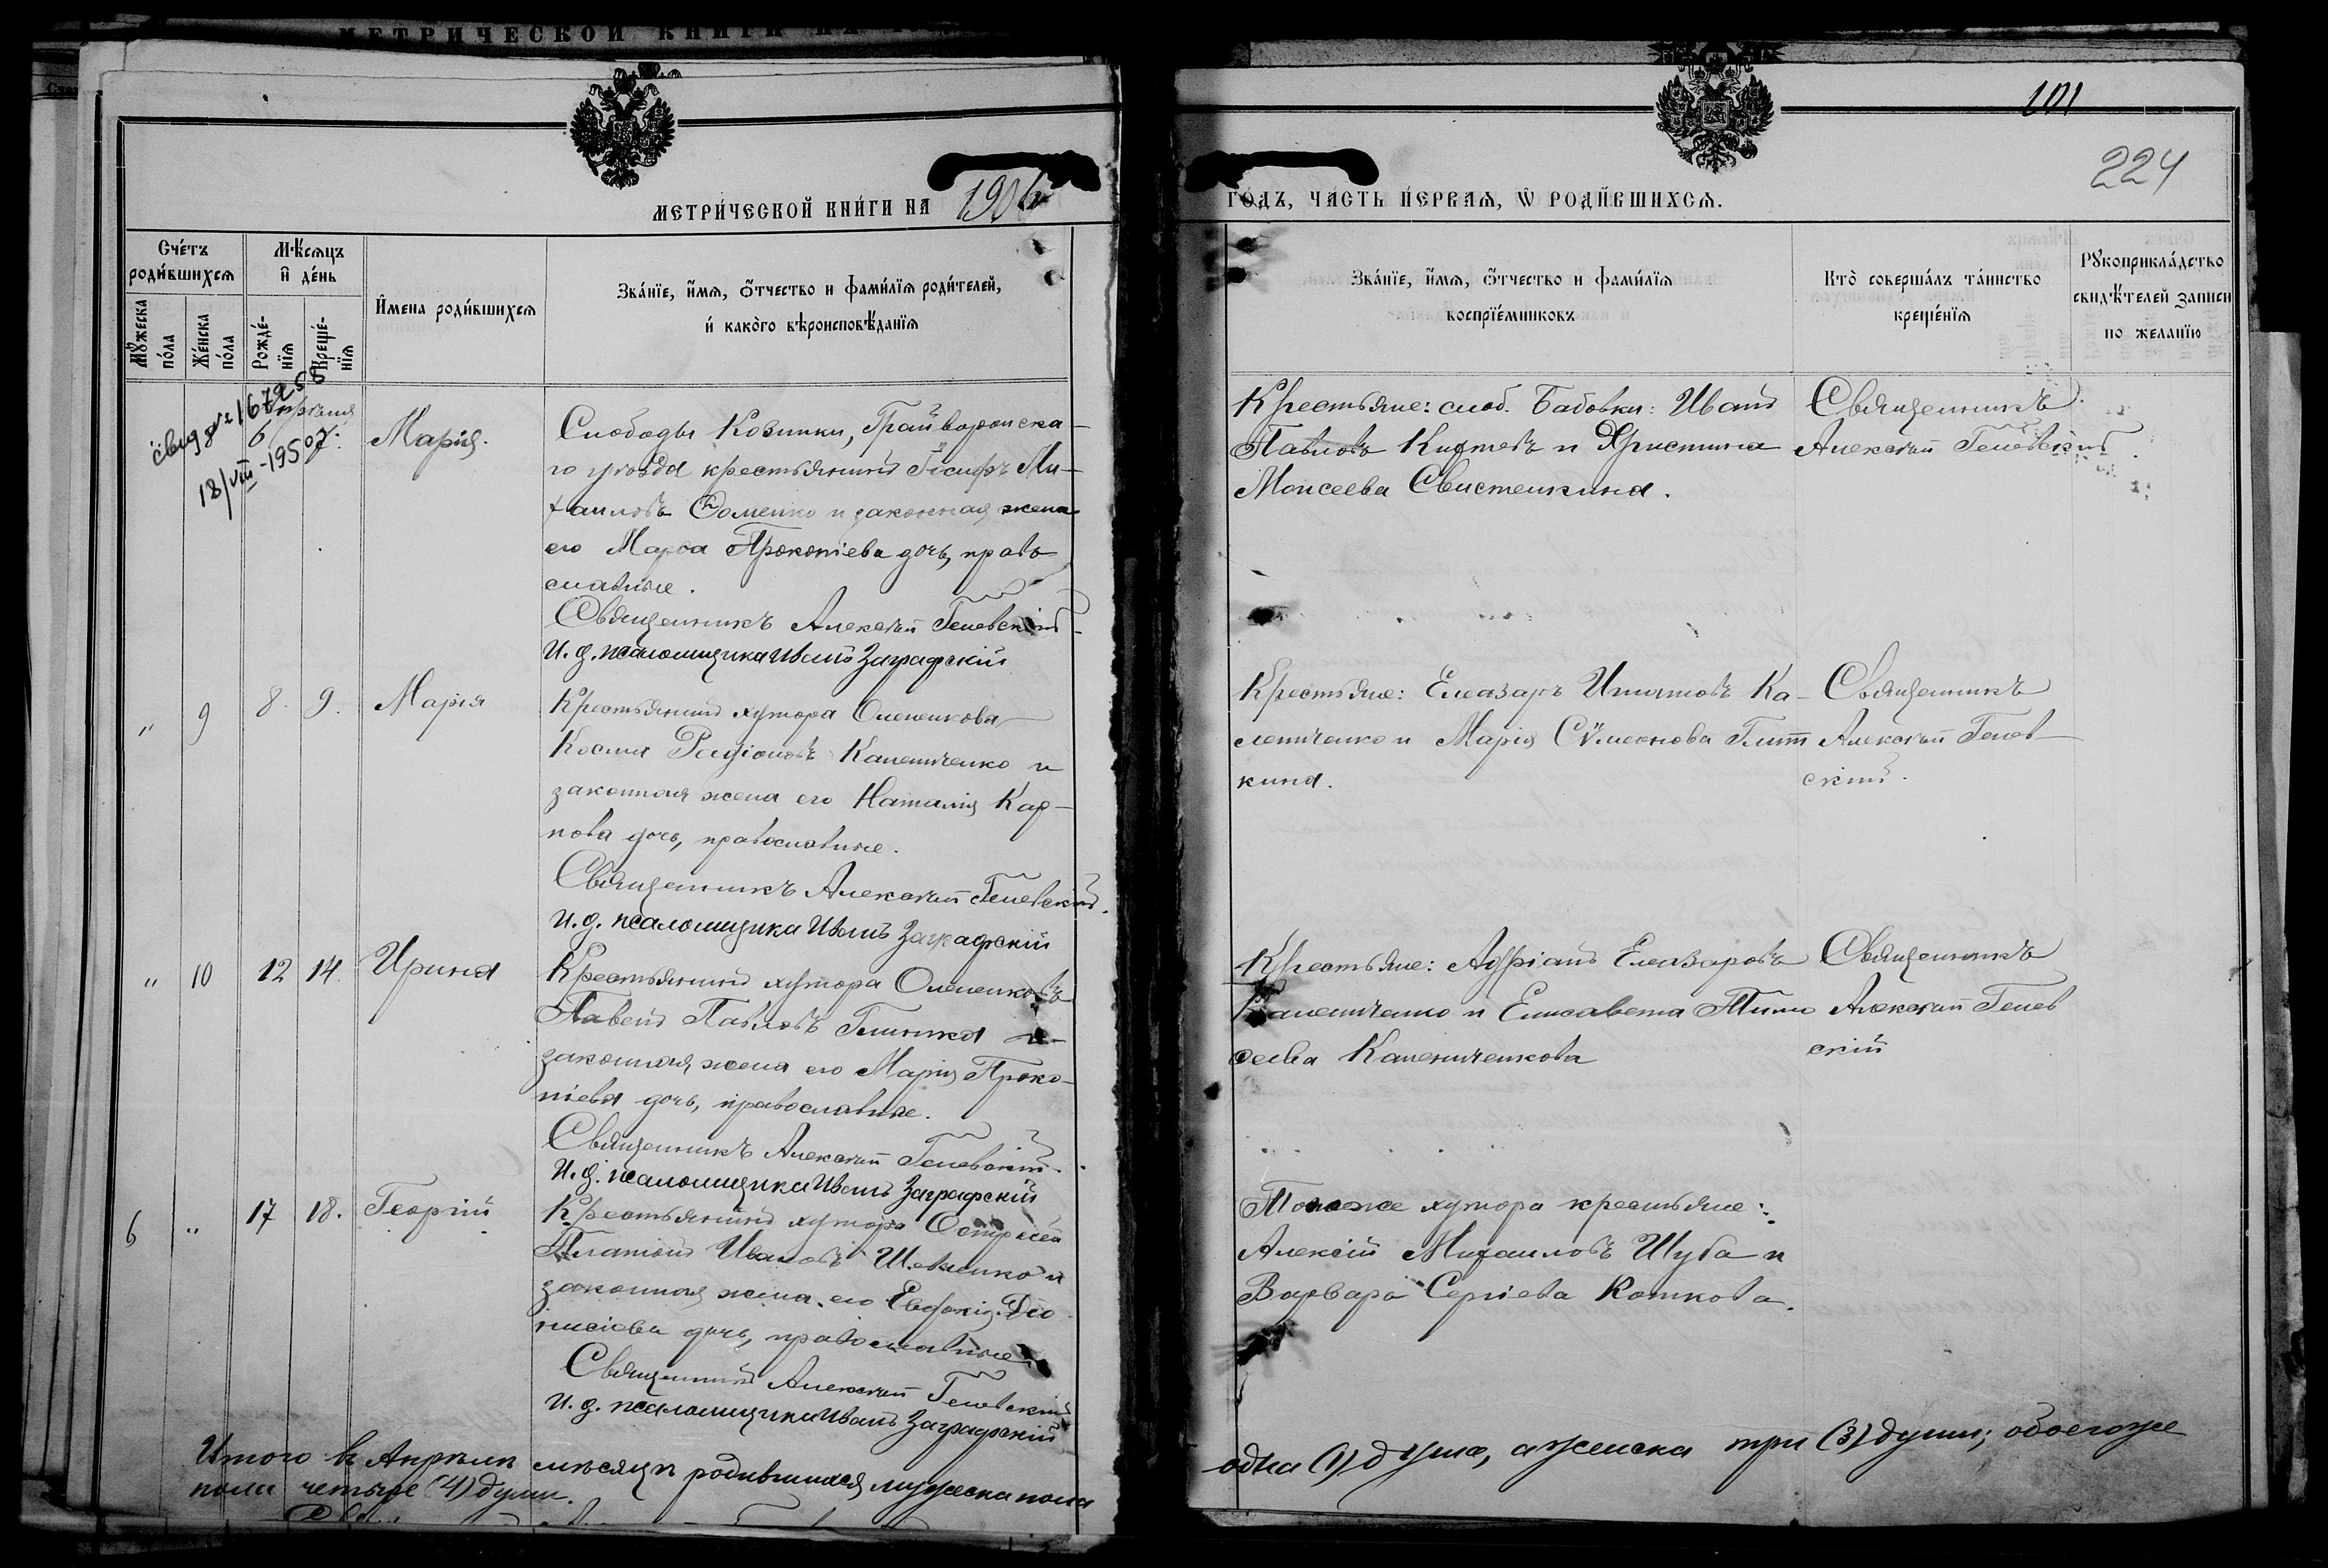 МЕТРИЧЕСКОЙ КНИГИ НА
101
224
МЕТРИ́ЧЕСКОЙ КНИ́ГИ НА 1906
ГО́ДЪ, ЧА́СТЬ ПЕ́РВАЯ, Ѡ РОДИ́ВШИХСЯ.
Сче́тъ
роди́вшихся
Мѣ́сяцъ
и де́нь
Мꙋ́жеска
по́ла
Же́нска
по́ла
Рожде́-
нїя
Креще́-
нїя
И҆мена роди́вшихся
Зва́нїе, и҆мя, ѻ҆́тчество и фами́лїя роди́телей,
и како́го вѣроисповѣ́данїя
Зва́нїе, и҆мя, ѻ҆́тчество и фами́лїя
воспрїе́мниковъ
Кто̀ соверша́лъ та́инство
креще́нїя
Рꙋкоприкла́дство
свидѣ́телей записи
по жела́нїю
Апрѣля
6
7.
18/VIII-1950
Марія.
Слободы Козинки, Грайворонска-
го уѣзда крестьянинъ Іосифъ Ми-
хаиловъ Фоменко и законная жена
его Марѳа Прокопіева дочь, право
славные.
Священникъ Алексій Геневскій
И.д. псаломщика Иванъ Заграфскій
Крестьяне: слоб. Бабовки: Иванъ
Павловъ и Христина
Моисеева Свистелкина.
Священникъ
Алексій Геневскій
" 9 8. 9. Марія
Крестьянинъ хутора Оленикова
Косма Радіоновъ Калениченко и
законная жена его Наталія Кар-
пова дочь, православные.
Священникъ Алексій Геневскій.
И.д. псаломщика Иванъ Заграфскій
Крестьяне: Елеазаръ Игнатовъ Ка-
лениченко и Марія Сѵмеонова Глит
кина.
Священникъ
Алексій Генев
скій.
" 10 12 14. Ирина
Крестьянинъ хутора Олениковъ
Павелъ Павловъ Глитка и
законная жена его Марія Проко-
піева дочь, православные.
Священникъ Алексій Геневскій.
И.д. псаломщика Иванъ Заграфскій
Крестьяне: Адріанъ Елеазаровъ
Калениченко и Елисавета Тимо
ѳеева Калениченкова
Священникъ
Алексій Генев
скій
6 " 17 18. Георгій
Крестьянинъ хутора
Платонъ Ивановъ Шевченко и
законная жена его Евдокія Діо
нисіева дочь, православные
Священникъ Алексій Геневскій
И.д. псаломщика Иванъ Заграфскій
Тогоже хутора крестьяне:
Алексій Михаиловъ Шуба и
Варвара Сергіева Коткова.
Итого въ Апрѣлѣ мѣсяцѣ родившихся мужеска пола
одна (1) душа, а женска три (3) души; обоегоже
пола четыре (4) души.